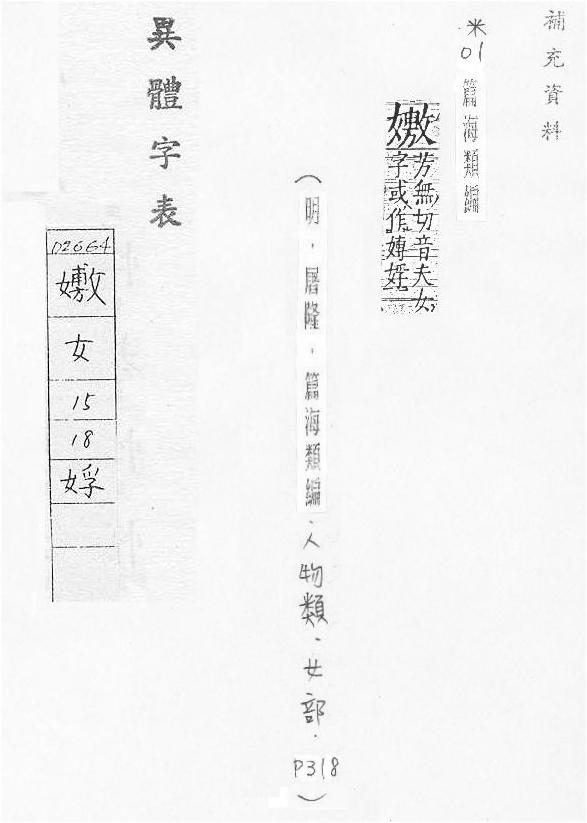 補充資料
米01篇海類編
㜑芳無切音夫女
字或作
(明．屠隆．篇海類編．人物類．女部．P318)
異體字表
02664
㜑
女
15
18
娐